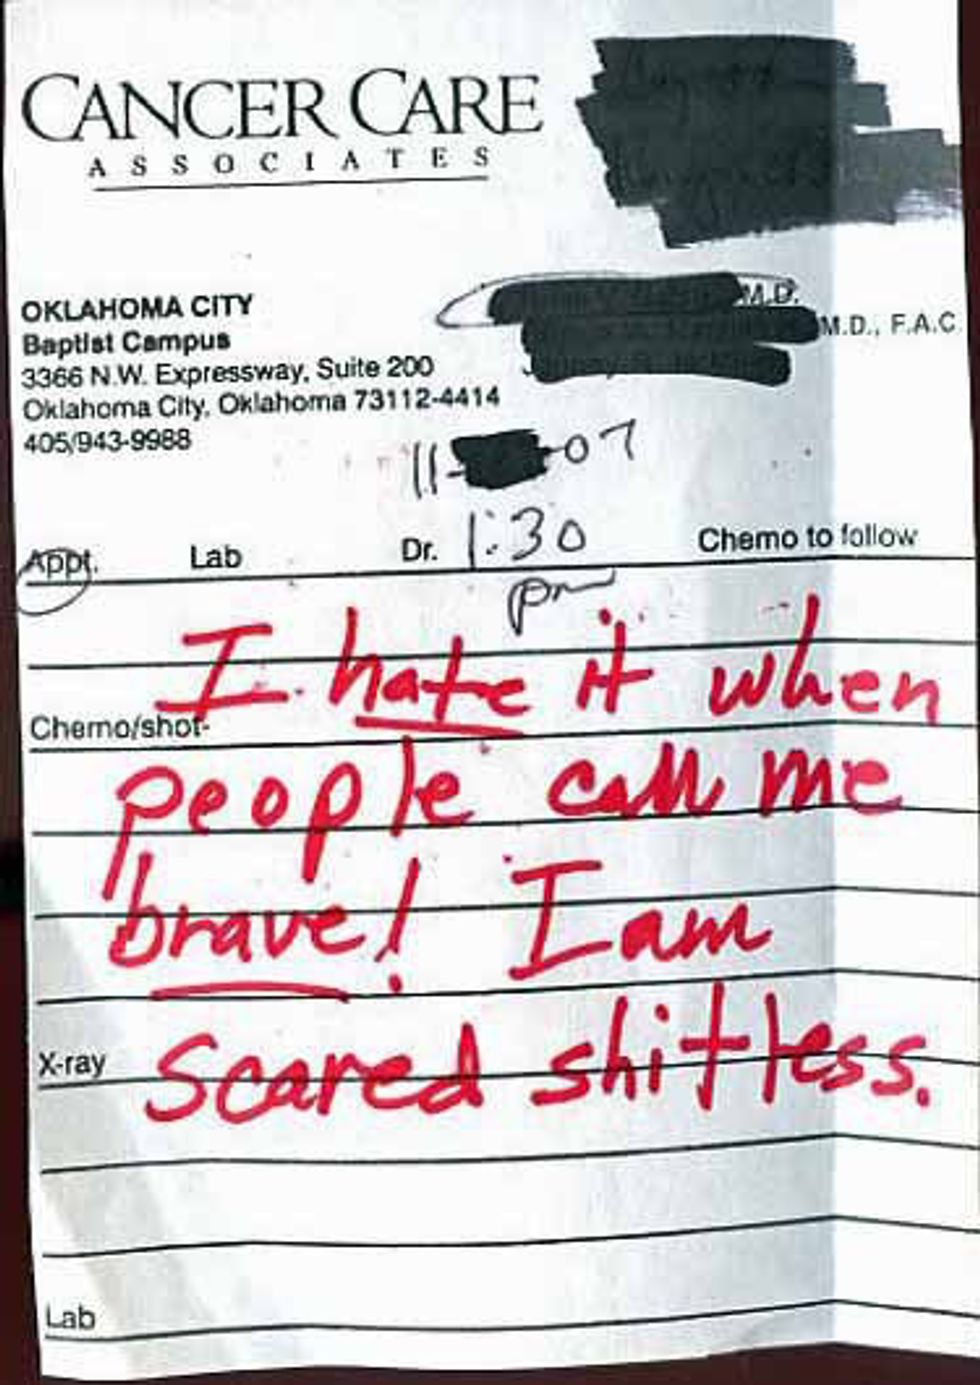 CANCER CARE
ASSOCIATES
OKLAHOMA CITY
Baptist Campus
3366 N.W. Expressway, Suite 200
Oklahoma City, Oklahoma 73112-4414
405/943-9988
M.D.
M.D., F.A.C
11- -07
Appt. Lab Dr. 1:30 Chemo to follow
pm
I hate it when
Chemo/shot-
people call me
brave! I am
X-ray scared shitless.
Lab